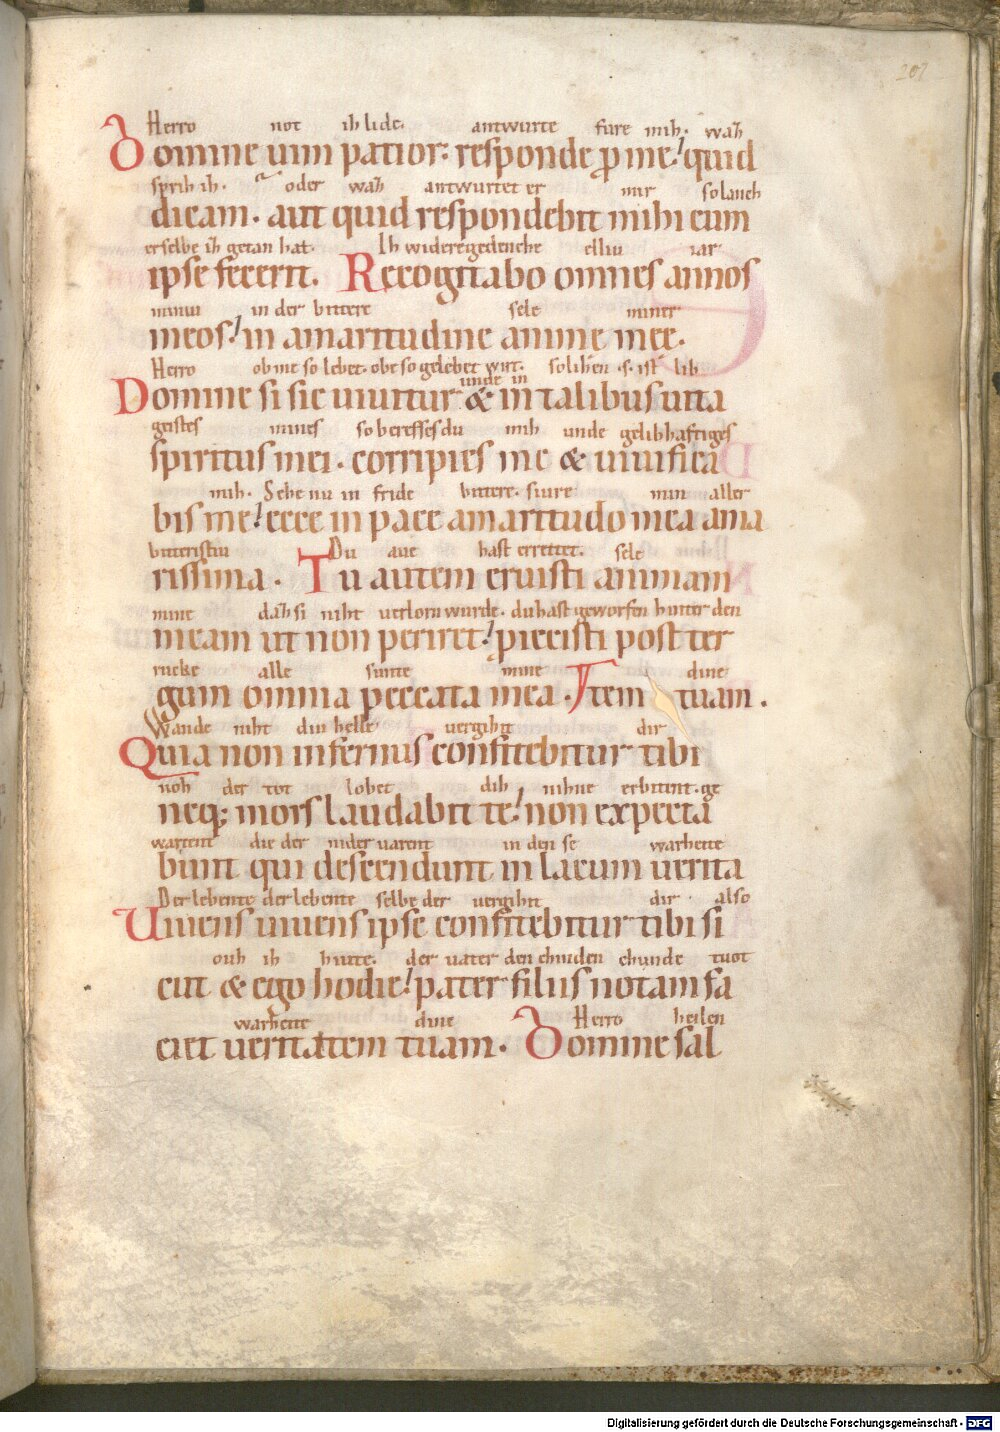 207
Herro not ih lide. antwurte fure mih. waȥ
Domine uim patior. responde ꝓ me! quid
sprih ih. oder waȥ antwurtet er mir so lanch
dicam. aut quid respondebit mihi cum
er selbe iȥ getan hat. Ih wideregedenche elliu iar
ipse fecerit. Recogitabo omnes annos
miniu in der bittere sele miner
meos! in amaritudine anime mee.
Herro ob me so lebet. obe so gelebet wirt. solihen .s. ist lib
unde in
Domine si sic uiuitur & in talibus uita
geistes mines so bereffes du mih unde gelibhaftiges
spiritus mei. corripies me & uiuifica
mih. Sehe nu in fride bittere. siure min aller
bis me! ecce in pace amaritudo mea ama
bitteristiu Du aue hast errettet. sele
rissima. Tu autem eruisti animam
mine daȥ si niht uerlorn wurde. du hast geworfen hinter den
meam ut non periret! ꝓiecisti post ter
rucke alle sunte mine dine
gum omnia peccata mea. Item tuam.
Wande niht diu helle uergiht dir
Quia non infernus confitebitur tibi
noh der tot lobet dih nihne erbitint. ge
neq; mors laudabit te! non expecta
wartent die der nider uarent in den se warheite
bunt qui descendunt in lacum uerita
Der lebente der lebente selbe der uergiht dir also
Uiuens uiuens ipse confitebitur tibi si
ouh ih hiute. der uater den chinden chunde tuot
cut & ego hodie! pater filiis notam fa
warheite dine Herro heilen
ciet ueritatem tuam. Domine sal
Digitalisierung gefördert durch die Deutsche Forschungsgemeinschaft - DFG